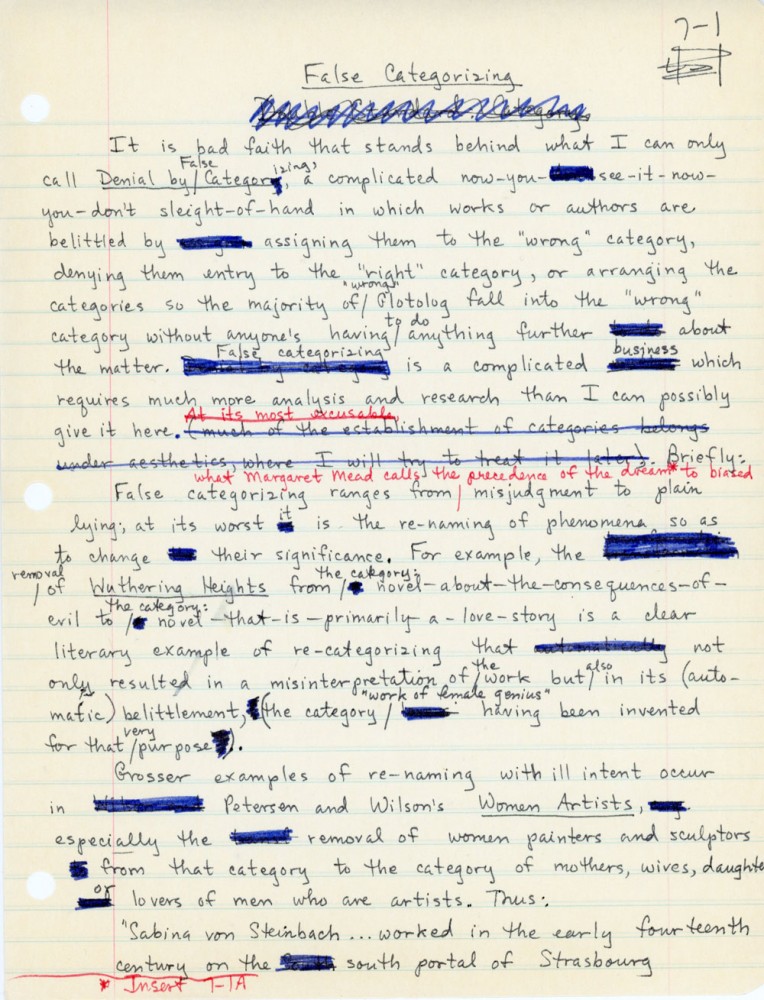 7-1
False Categorizing
It is bad faith that stands behind what I can only
call Denial by False Categorizing, a complicated now-you-see-it-now-
you-don't sleight-of-hand in which works or authors are
belittled by assigning them to the "wrong" category,
denying them entry to the "right" category, or arranging the
categories so the majority of "wrong" Glotolog fall into the "wrong"
category without anyone's having to do anything further about
the matter. False categorizing is a complicated business which
requires much more analysis and research than I can possibly
give it here. (much of the establishment of categories belongs
under aesthetics, where I will try to treat it later). Briefly:
At its most excusable
what Margaret Mead calls the precedence of the dream* to biased
False categorizing ranges from misjudgment to plain
lying; at its worst it is the re-naming of phenomena so as
to change their significance. For example, the
removal of Wuthering Heights from the category: novel-about-the-consequences-of-
evil to the category: novel-that-is-primarily-a-love-story is a clear
literary example of re-categorizing that not
only resulted in a misinterpretation of the work but also in its (auto-
matic) belittlement, (the category "work of female genius" having been invented
for that very purpose).
Grosser examples of re-naming with ill intent occur
in Petersen and Wilson's Women Artists,
especially the removal of women painters and sculptors
from that category to the category of mothers, wives, daughte
or lovers of men who are artists. Thus:
"Sabina von Steinbach... worked in the early fourteenth
century on the south portal of Strasbourg
* Insert 7-1A